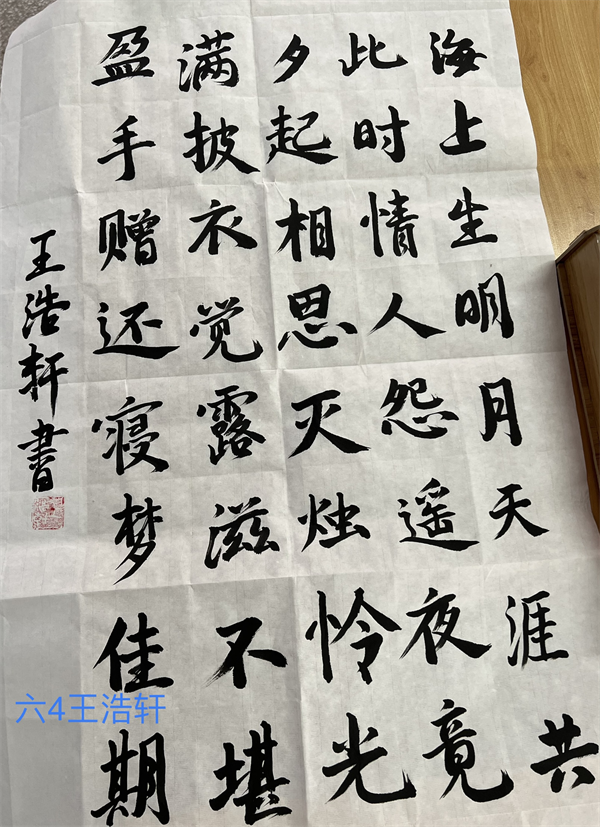 海上生明月天涯共
此时情人怨遥夜竟
夕起相思灭烛怜光
满披衣觉露滋不堪
盈手赠还寝梦佳期
王浩轩书
六4王浩轩